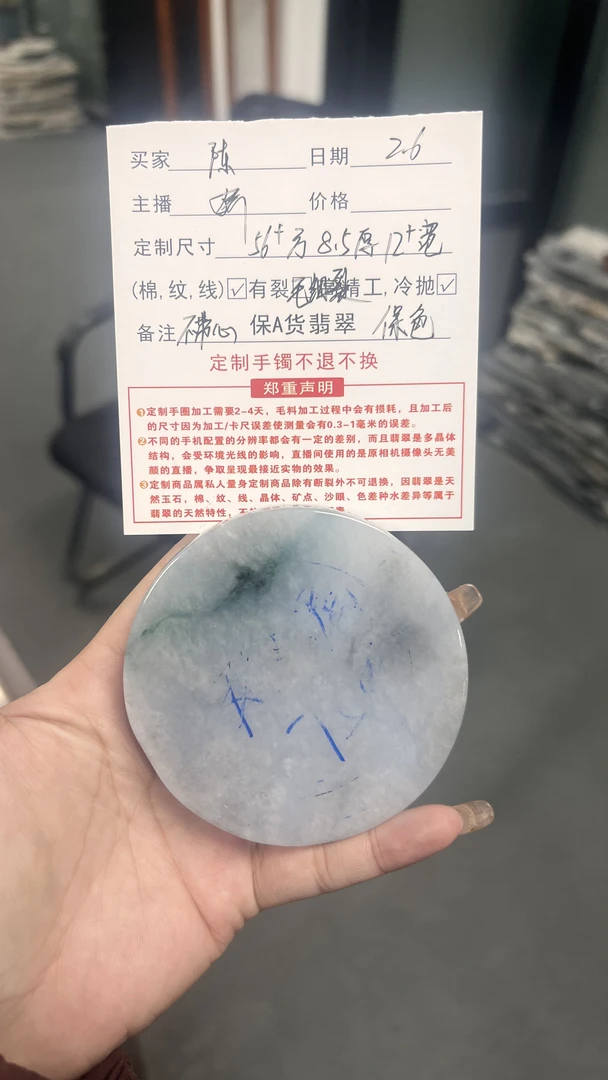 买家 陈 日期 2.6
主播 价格
定制尺寸 56+方 8.5厚 12+宽
(棉,纹,线)☑有裂 精工,冷抛☑
备注 带心 保A货翡翠 保色
定制手镯不退不换
郑重声明
①定制手圈加工需要2-4天,毛料加工过程中会有损耗,且加工后
的尺寸因为加工/卡尺误差使测量会有0.3-1毫米的误差。
②不同的手机配置的分辨率都会有一定的差别,而且翡翠是多晶体
结构,会受环境光线的影响,直播间使用的是原相机摄像头无美
颜的直播,争取呈现最接近实物的效果。
③定制商品属私人量身定制商品除有断裂外不可退换,因翡翠是天
然玉石,棉、纹、线、晶体、矿点、沙眼、色差种水差异等属于
翡翠的天然特性,